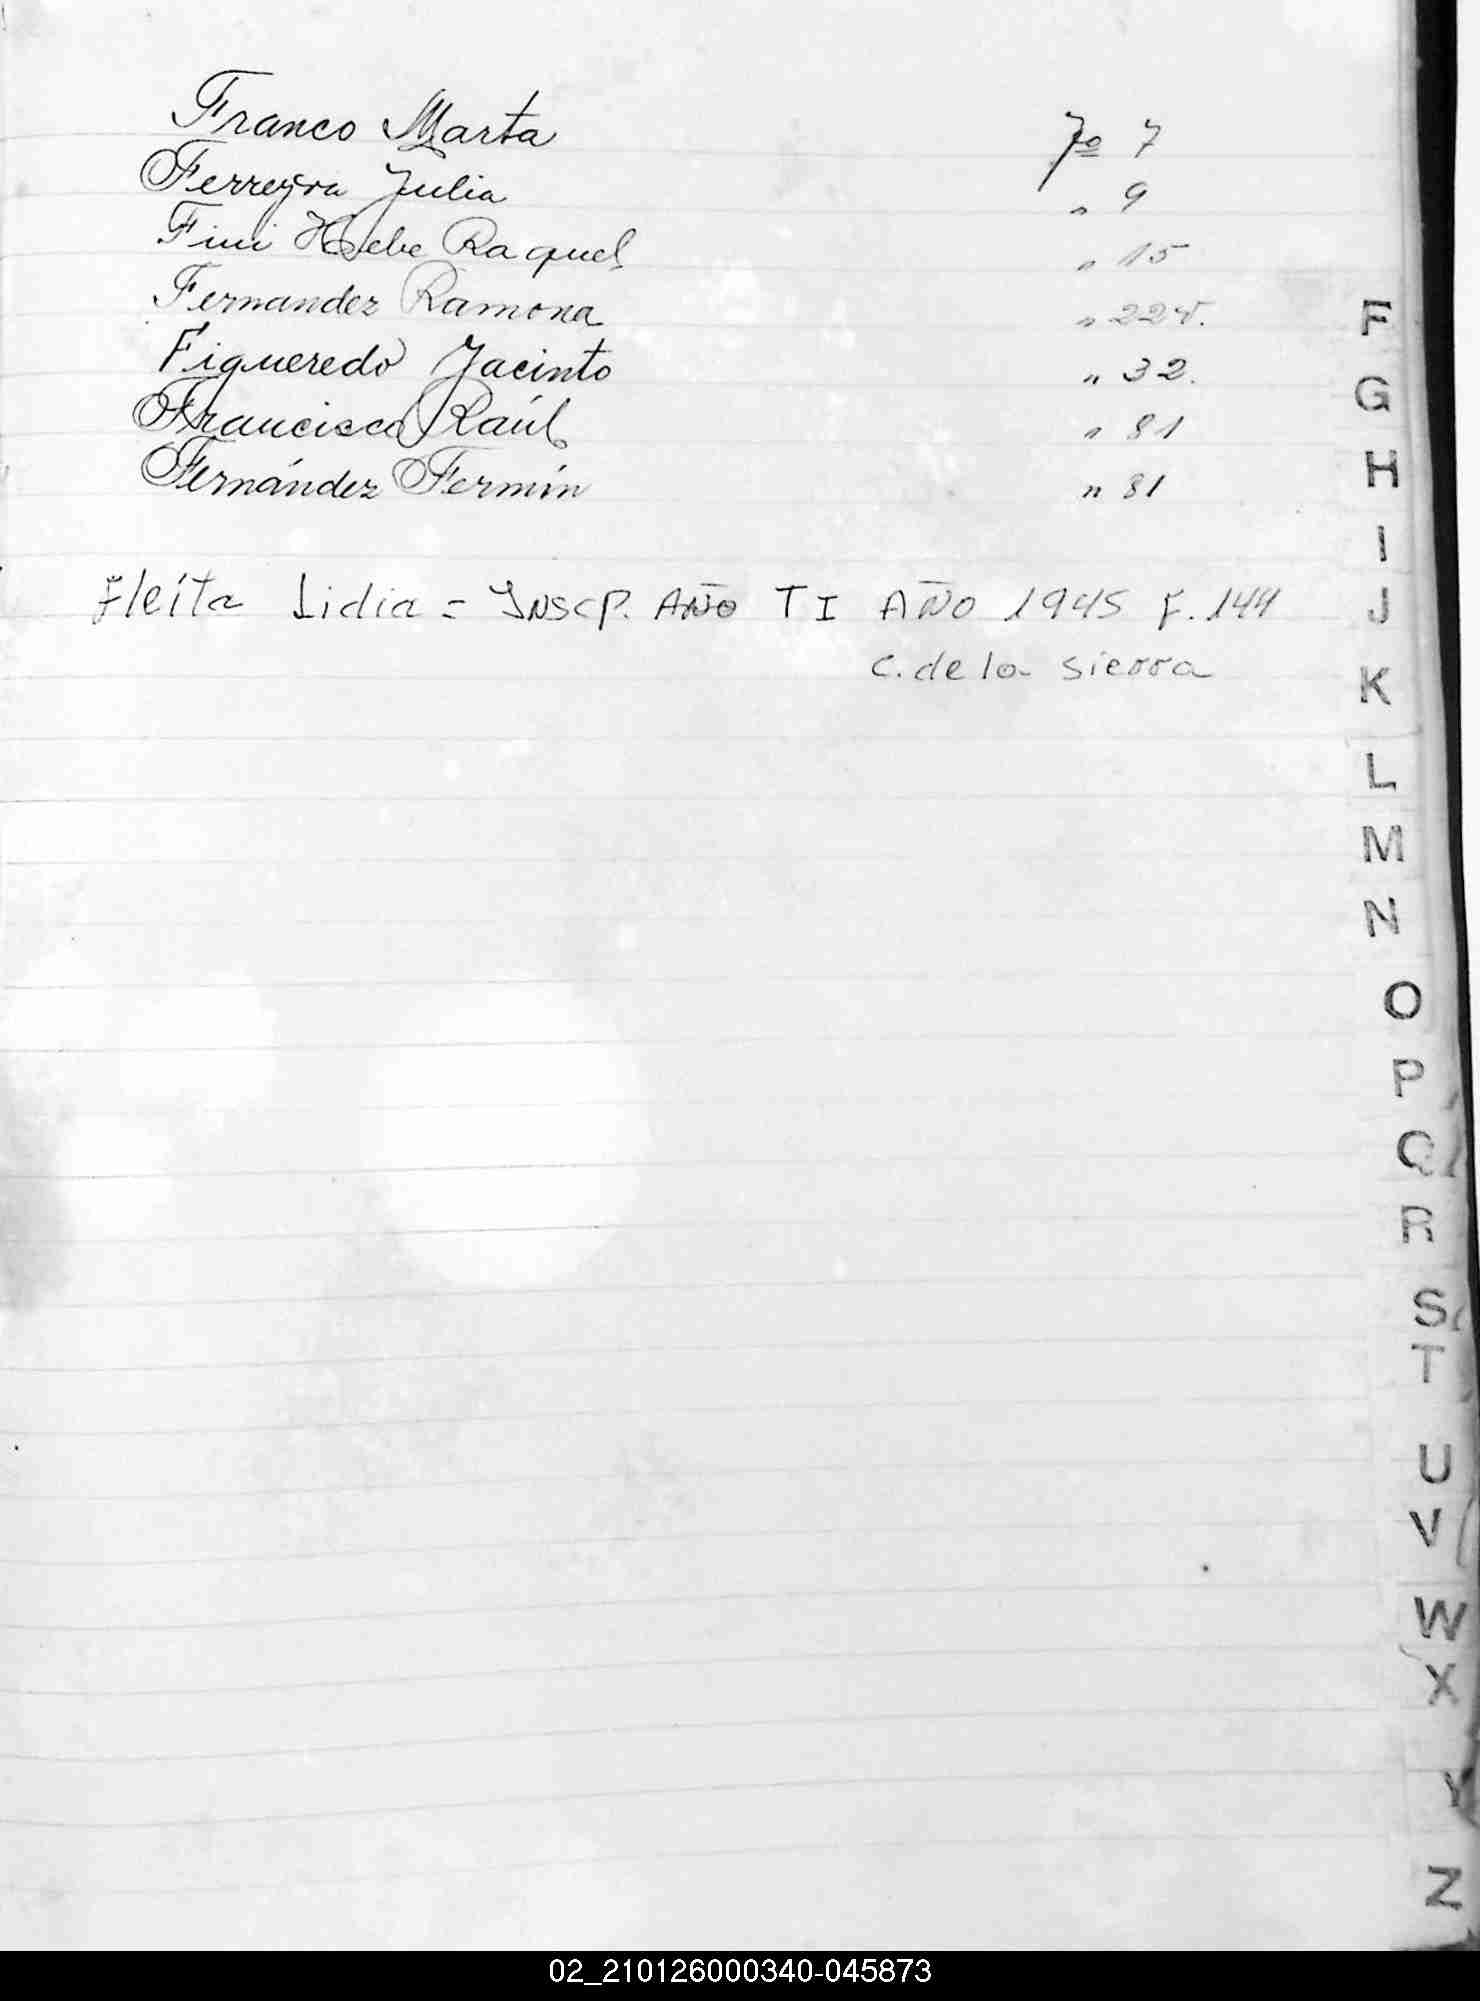 Franco Marta fo 7
Ferreyra Julia " 9
Fini Hebe Raquel " 15
Fernandez Ramona " 22v.
Figueredo Jacinto " 32.
Francisco Raúl " 81
Fernández Fermín " 81
Fleíta Lidia = Inscp. AÑO TI AÑO 1945 F. 144
C. de la Sierra
F
G
H
I
J
K
L
M
N
O
P
Q
R
S
T
U
V
W
X
Y
Z
02_210126000340-045873